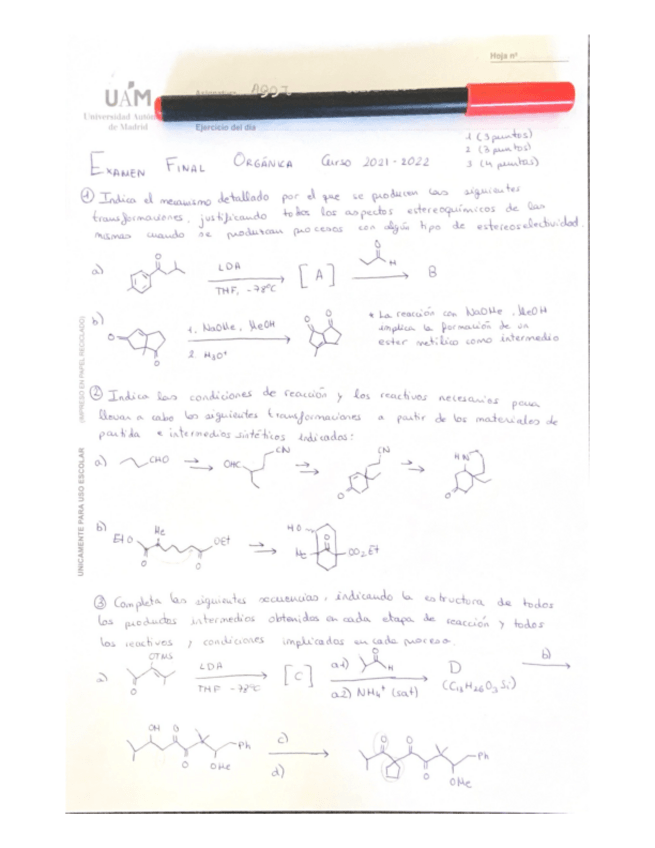 Hoja nº
UAM
Universidad Autón
de Madrid
Ejercicio del día
1 (3 puntos)
2 (3 puntos)
3 (4 puntos)
EXAMEN FINAL ORGÁNICA Curso 2021-2022
① Indica el mecanismo detallado por el que se producen las siguientes
transformaciones, justificando todos los aspectos estereoquímicos de las
mismas cuando se produzcan procesos con algún tipo de estereoselectividad.
a) O LDA THF, -78ºC [A] O H B
b) O O 1. NaOMe, MeOH 2. H3O+ O O
* La reacción con NaOMe, MeOH
implica la formación de un
ester metílico como intermedio
(IMPRESO EN PAPEL RECICLADO)
② Indica las condiciones de reacción y los reactivos necesarios para
llevar a cabo las siguientes transformaciones a partir de los materiales de
partida e intermedios sintéticos indicados:
a) CHO OHC CN O CN HN O
UNICAMENTE PARA USO ESCOLAR
b) EtO Me OEt O O HO Me O CO2Et
③ Completa las siguientes secuencias, indicando la estructura de todos
los productos intermedios obtenidos en cada etapa de reacción y todos
los reactivos y condiciones implicadas en cada proceso.
a) OTMS O LDA THF -78ºC [C] a1) O H a2) NH4+ (sat) D b)
OH O O OMe Ph c) d) O O O OMe Ph